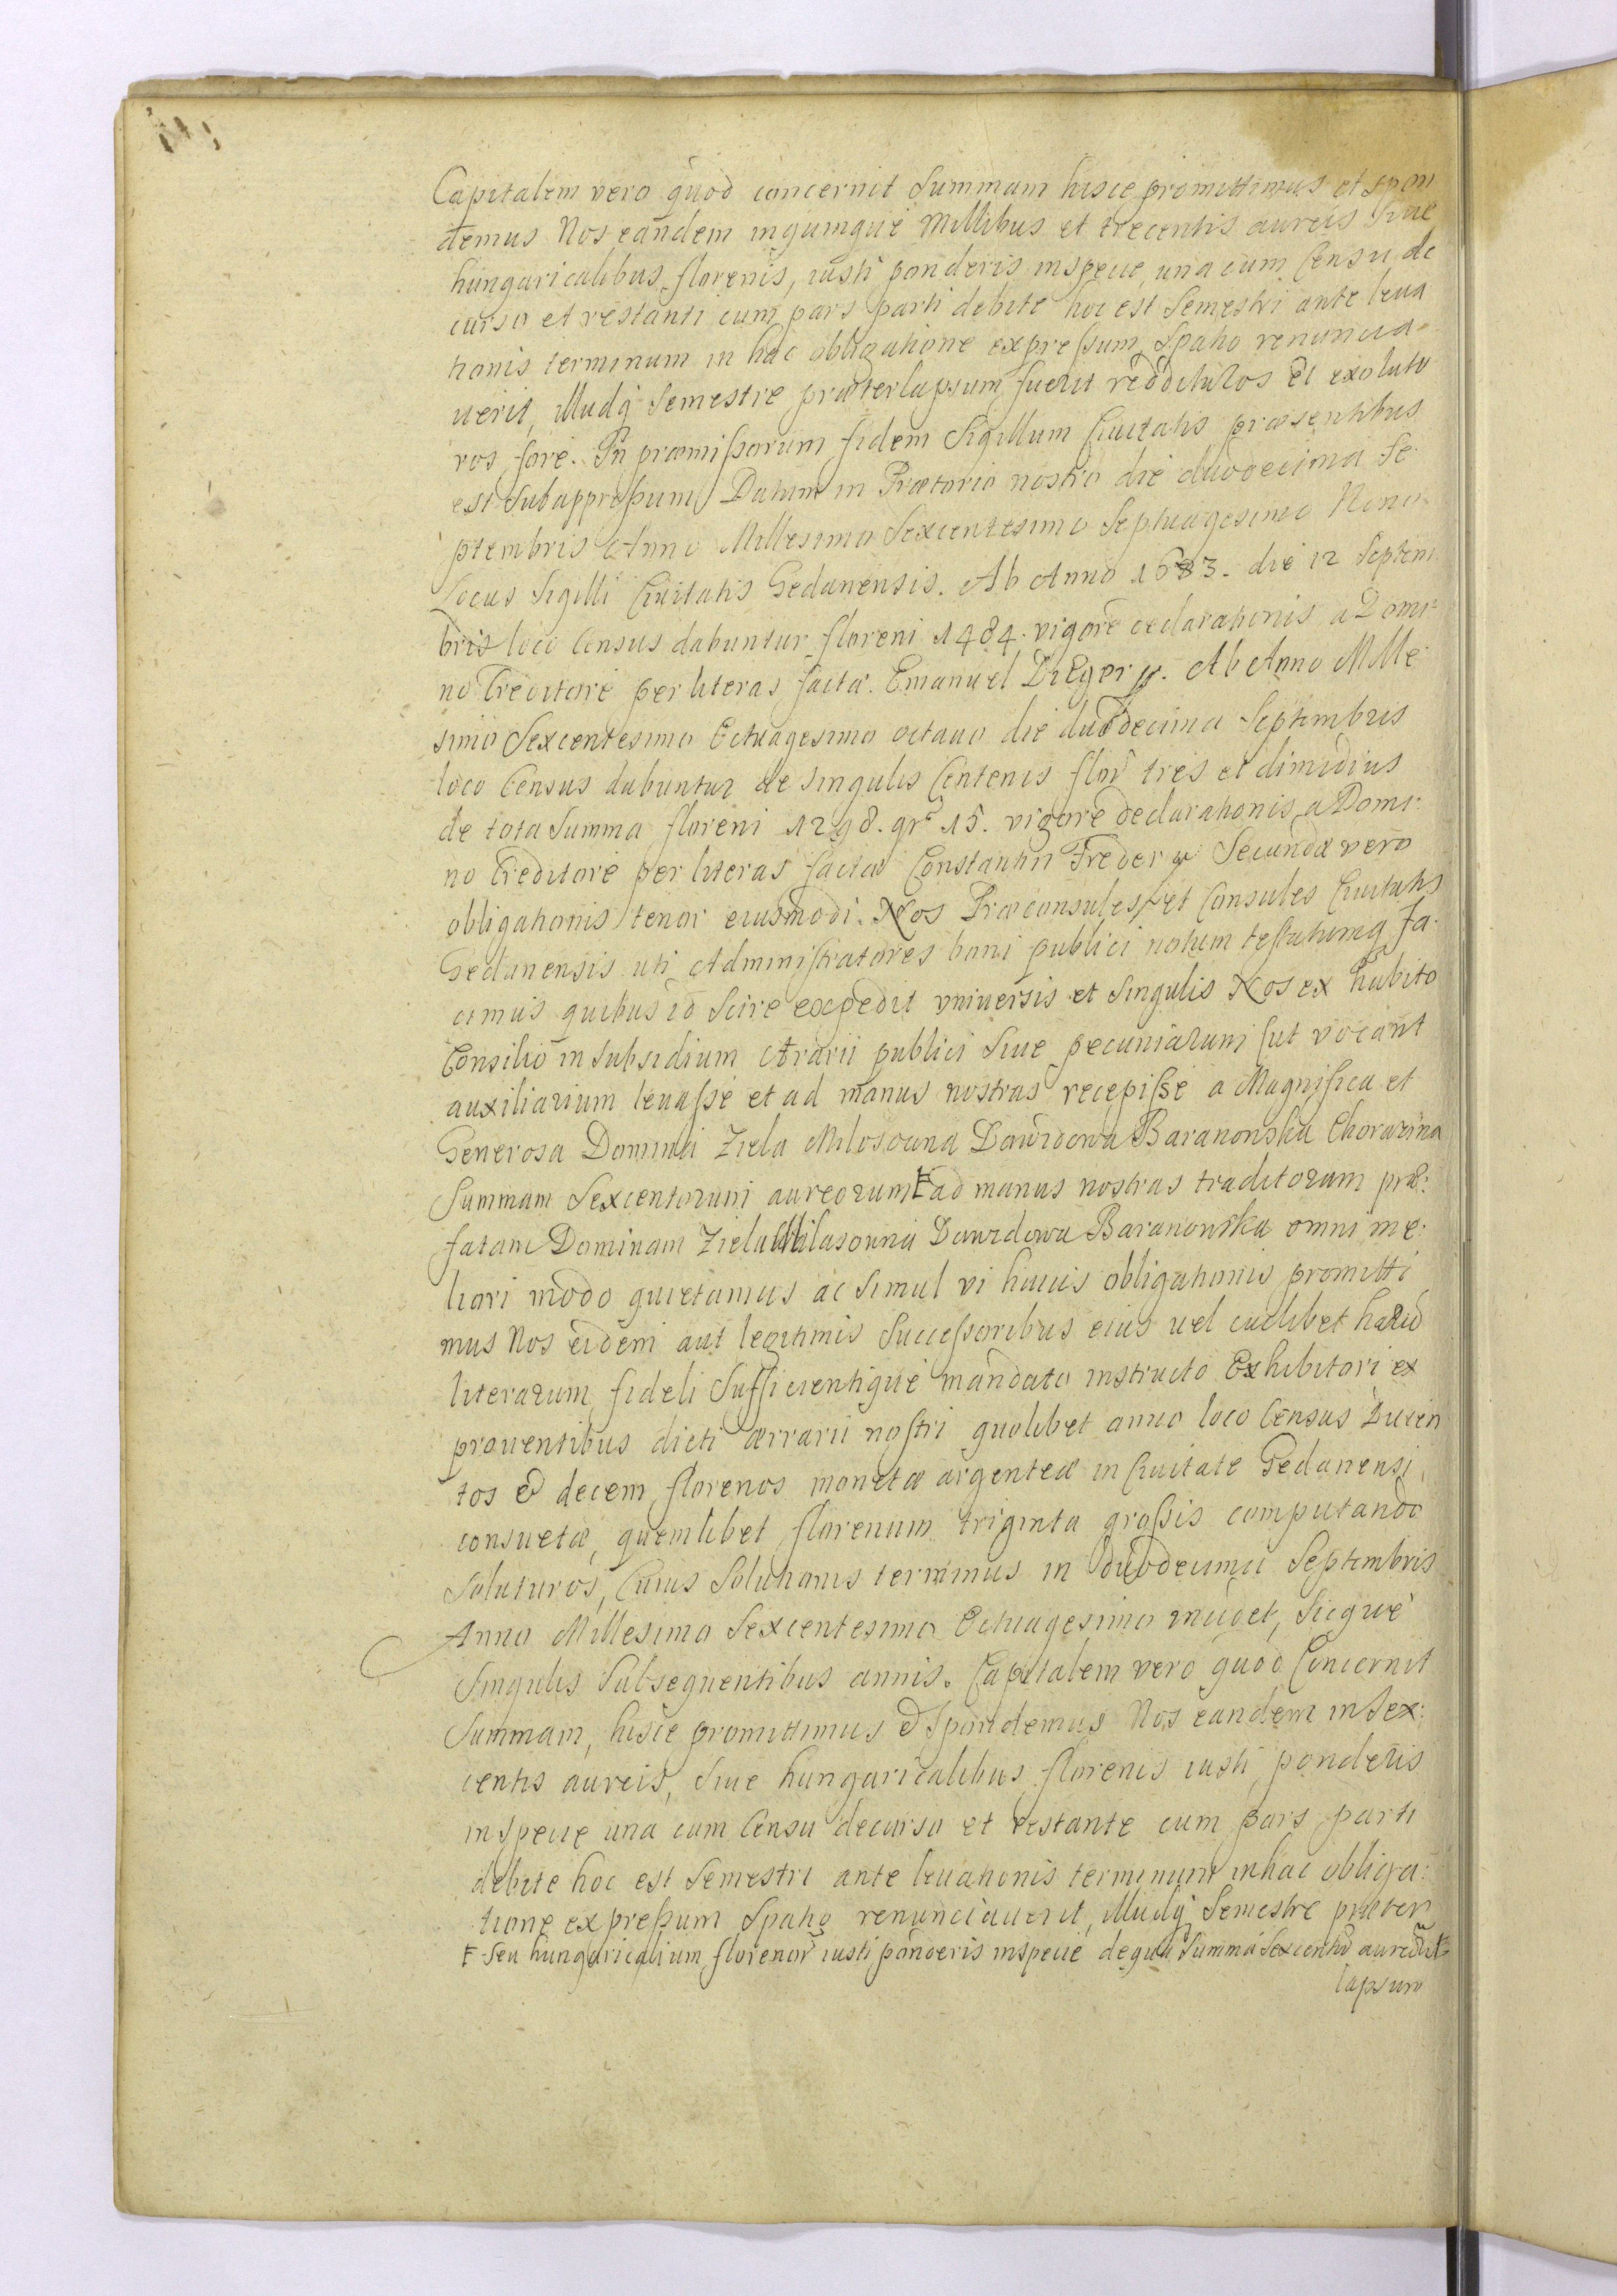 Capitalem vero quod concernit Summam hisce promittimus et spon
demus Nos eandem inquinque Millibus et trecentis aureis siue
hungaricalibus florenis, iusti ponderis inspecie, una cum Censu de
curso et restanti cum pars parti debite hoc est Semestri ante leua
tionis terminum in hac obligatione expressum Spatio renuncia-
uerit, illudq Semestre præterlapsum fuerit reddituros et exolutu
ros fore. In præmissorum fidem Sigillum Ciuitatis præsentibus
est Subappressum Datum in Prætorio nostro die duodecima Se-
ptembris Anno Millesimo Sexcentesimo Septuagesimo Nono
Locus Sigilli Ciuitatis Gedanensis. Ab Anno 1683. die 12 Septem
bris loco Census dabuntur floreni 1484. vigore declarationis a Domi-
no Creditore per literas factæ. Emanuel Dilger . Ab Anno Mille-
simo Sexcentesimo Octuagesimo octauo die duodecima Septembris
loco Census dabuntur de singulis Centenis flor tres et dimidius
de tota Summa floreni 1298. gr 15. vigore declarationis a Domi-
no Creditore per literas factæ Constantin Freder Secundæ vero
obligationis tenor eiusmodi. Nos Præconsules et Consules Ciuitatis
Gedanensis uti Administratores boni publici notum testatumq fa-
cimus quibus id Scire expedit vniuersis et Singulis Nos ex habito
Consilio in subsidium Ærarii publici Siue pecuniarum sut vocant
auxiliarium leuasse et ad manus nostras recepisse a Magnifica et
Generosa Domina Ziela Milosowna Dawidowa Baranowska Chorazina
Summam Sexcentorum aureorum F ad manus nostras traditorum præ:
fatam Dominam Ziela Milasowna Dawidowa Baranowska omni me:
liori modo quietamus ac Simul vi huius obligationis promitti
mus Nos eidem aut legitimis Successoribus eius uel cuilibet harū
literarum fideli Sufficientique mandato instructo Exhibitori ex
prouentibus dicti ærrarii nostri quolibet anno loco Census Ducen
tos & decem florenos monetæ argenteæ in Ciuitate Gedanensi
consuetæ, quemlibet florenum triginta grossis computando
Soluturos, Cuius Solutionis terminus in duodecima Septembris
Anno Millesimo Sexcentesimo Octuagesimo incidet, Sicque
Singulis Subsequentibus annis. Capitalem vero quod Concernit
Summam, hisce promittimus & Spondemus Nos eandem in Sex:
centis aureis, Siue hungaricalibus florenis iusti ponderis
inspecie una cum Censu decurso et restante cum pars parti
debite hoc est Semestri ante leuationis terminum inhac obliga:
tione expressum Spatio renunciauerit, illudq Semestre præter
F Seu hungaricalium florenor̃ iusti ponderis inspecie dequa Summa Sexcentor̃
lapsum